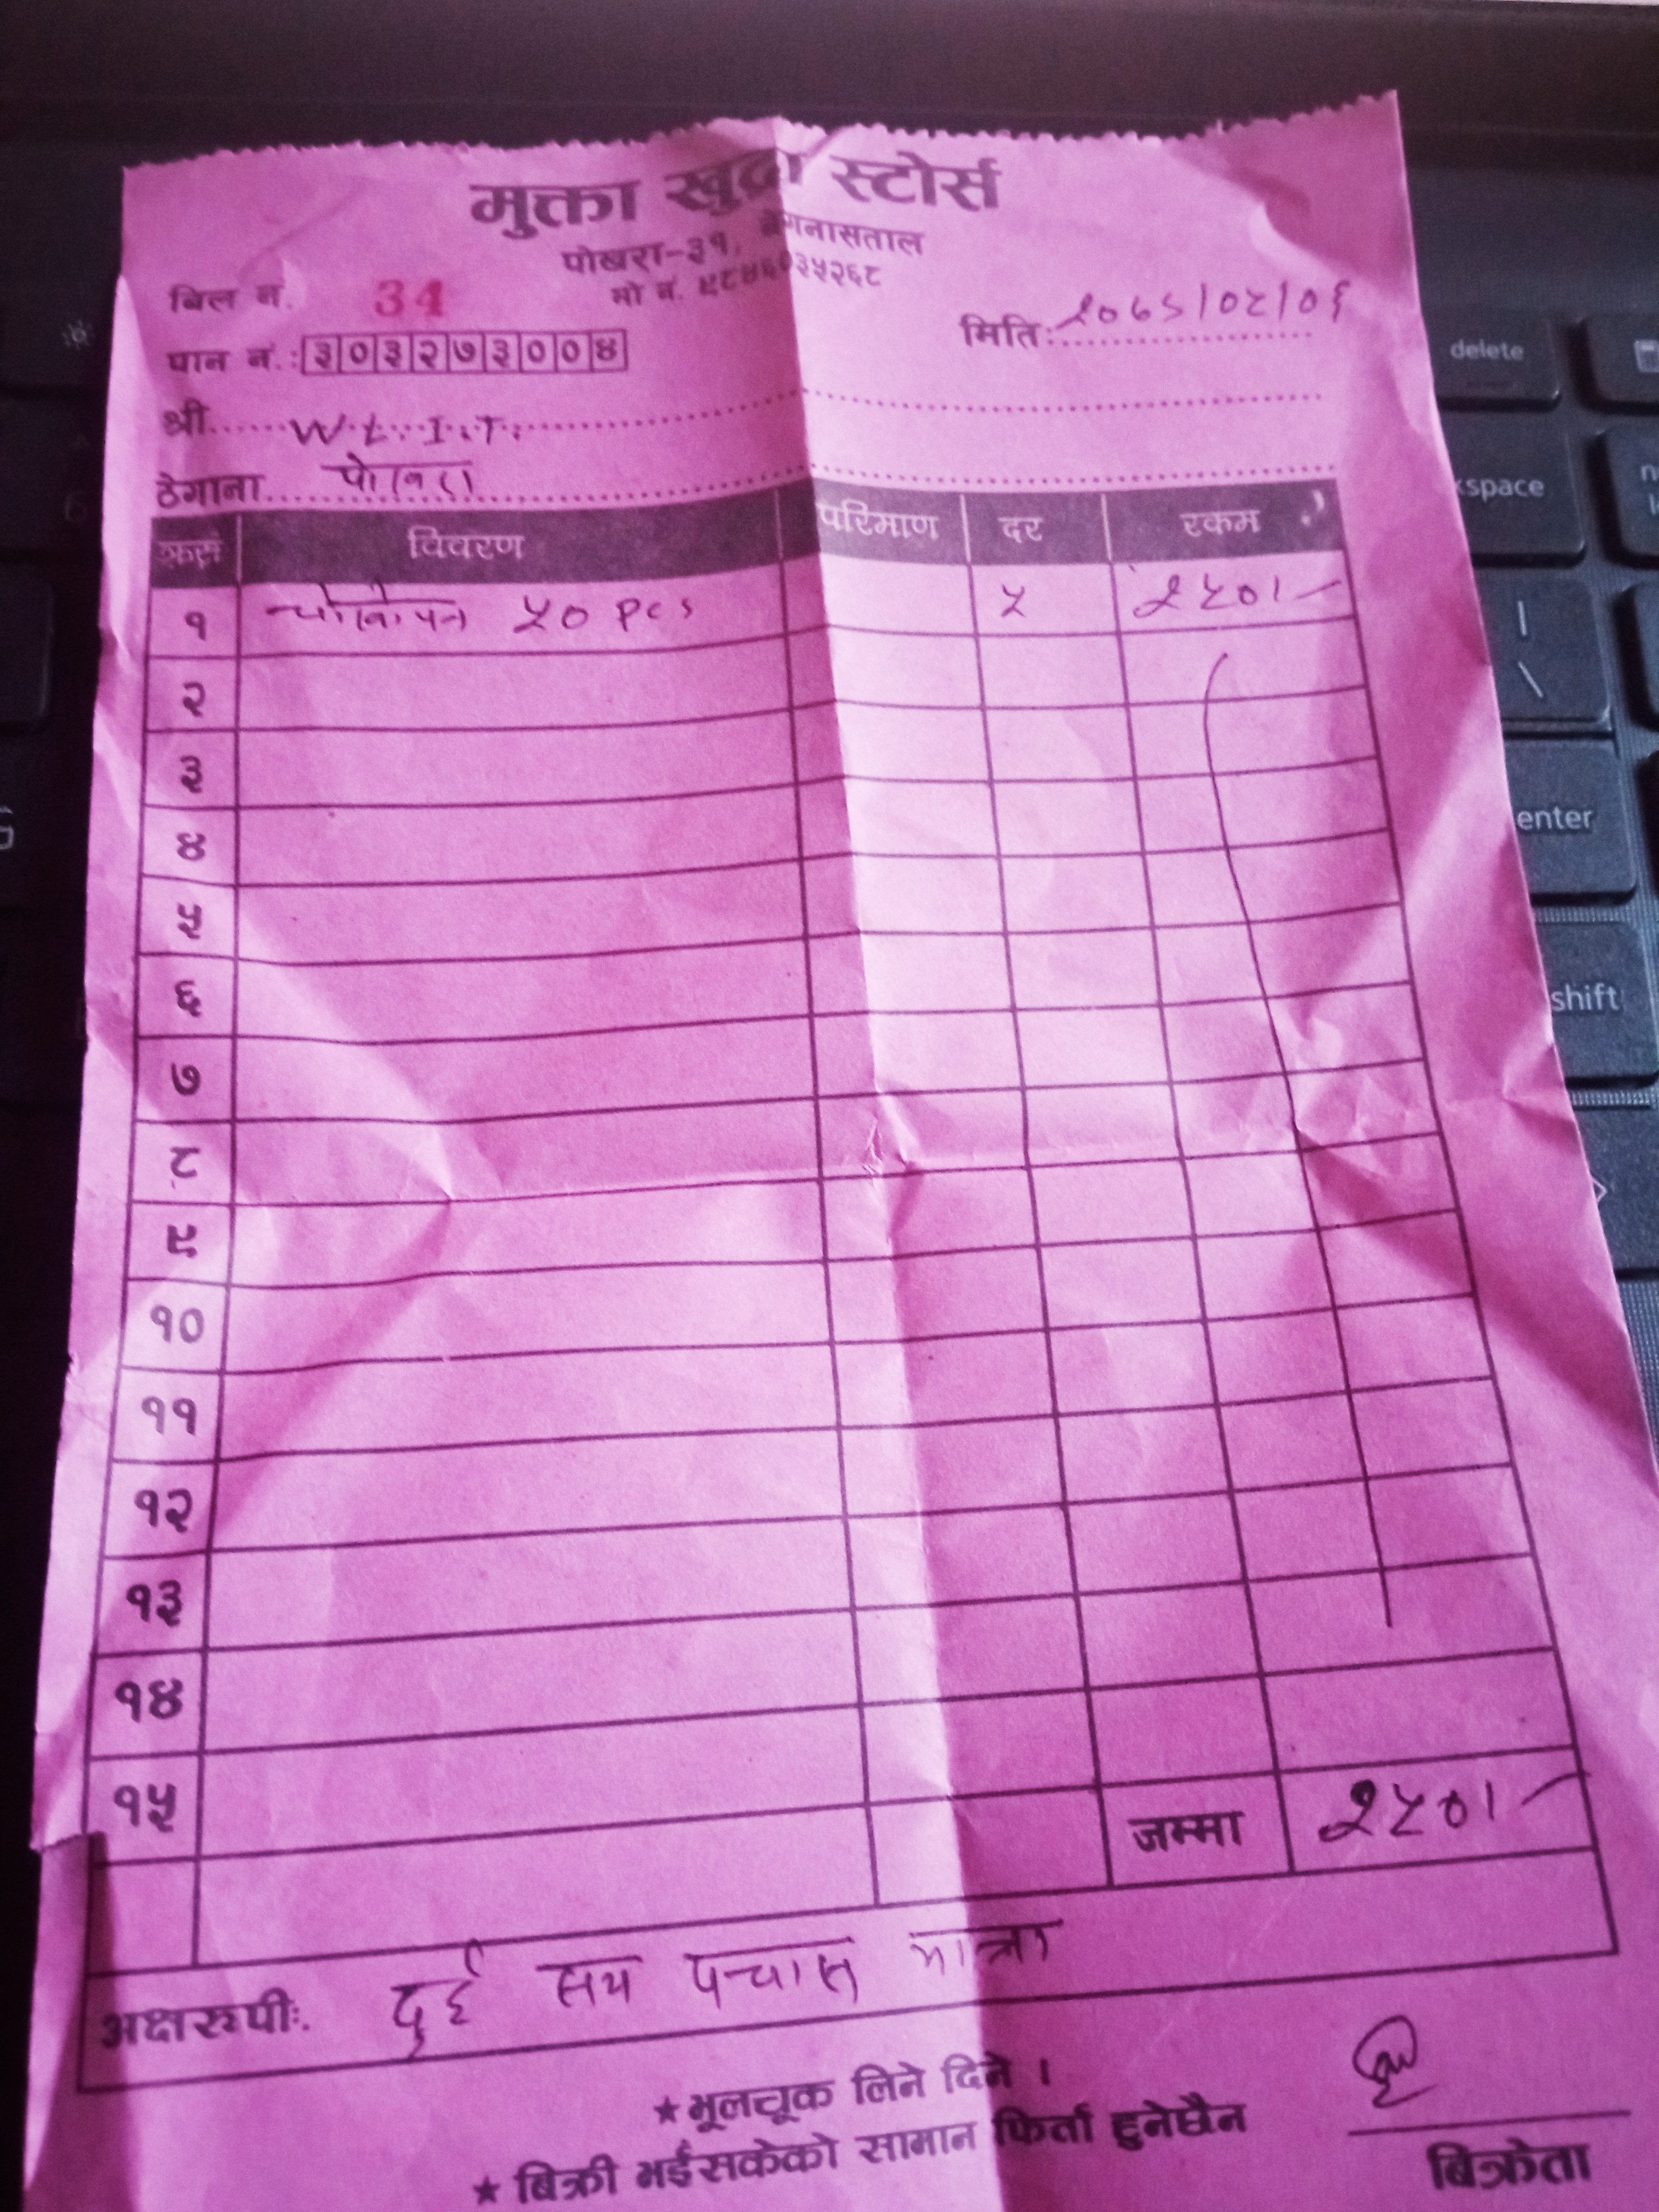 मुक्ता खुद्रा स्टोर्स
पोखरा-३१, बेगनासताल
मो नं. ९८४६०३५२६८
बिल नं. 34
मिति: २०७९/०८/०६
पान नं.: ३०३२७३००४
श्री W.L.I.T.
ठेगाना पोखरा
क्र.सं. विवरण परिमाण दर रकम
१ चोकोपन ५० pcs ५ २५०।-
२
३
४
५
६
७
८
९
१०
११
१२
१३
१४
१५
जम्मा २५०।-
अक्षरुपी: दुई सय पचास मात्र
★ भूलचूक लिने दिने ।
★ बिक्री भईसकेको सामान फिर्ता हुनेछैन
बिक्रेता
delete
space
enter
shift